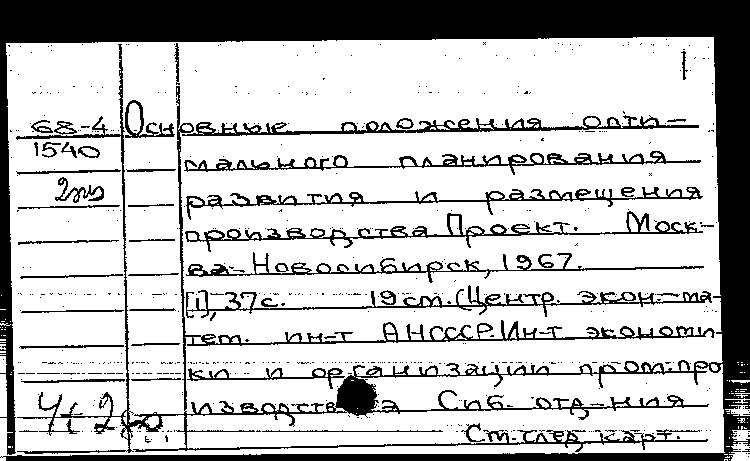 68-4 Основные положения опти-
1540 мального планирования
2экз развития и размещения
производства. Проект. Моск-
ва-Новосибирск, 1967.
[1], 37с. 19см. (Центр. экон.-ма-
тем. ин-т АНСССР. Ин-т экономи-
ки и организации пром. про
изводства Сиб. отд-ния
См. след. карт.